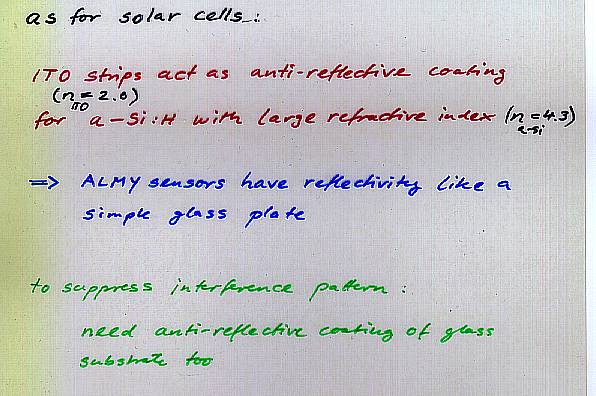 as for solar cells:
ITO strips act as anti-reflective coating
(n_ITO = 2.0)
for a-Si:H with large refractive index (n_a-Si = 4.3)
=> ALMY sensors have reflectivity like a
simple glass plate
to suppress interference pattern:
need anti-reflective coating of glass
substrate too